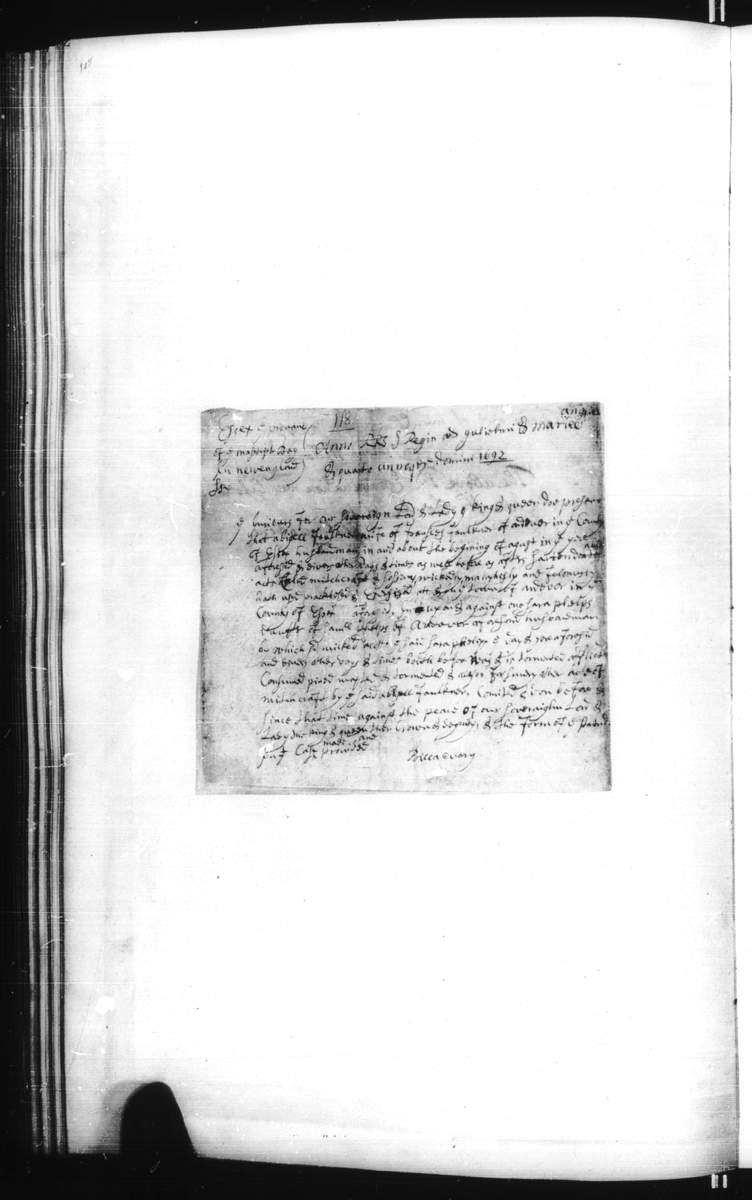 118
Essex e provanc
of e masetusit Bay
in new england
ss
Anno RRs & Regin ae gulielmi & Mariee angliee
& quarto annoqe domini 1692
e Juriours for our sovereign Lord & lady e King & queen doe present
that abigell faulkner wife of frances faulkner of andover in e County
of Essex husbandman in and about the begining of agust in e yere
aforesd & divers other days & times as well before as after Certain detestable
arts Called witchcraft & sorsry wickedly malishosly and felonusly
hath used practised & Exersised at & in e town of andover in e
County of Essex aforesd in upon & against one sara phelps
daufter of samll phelps of Andover aforesd husbandman
by which sd wicked acts e said sara phelps e day & yere aforesd
and divers other days & times both before & after was & is tormented aflicted
Consumed pined wasted & tormented & also for sundry other acts of
witchcraft by e said abigell faulkner Comited & don before &
since that time against the peace of our soveraighn Lord &
Lady the king & queen ther Crown & dignity & the form of e statut
in such Case made and provided